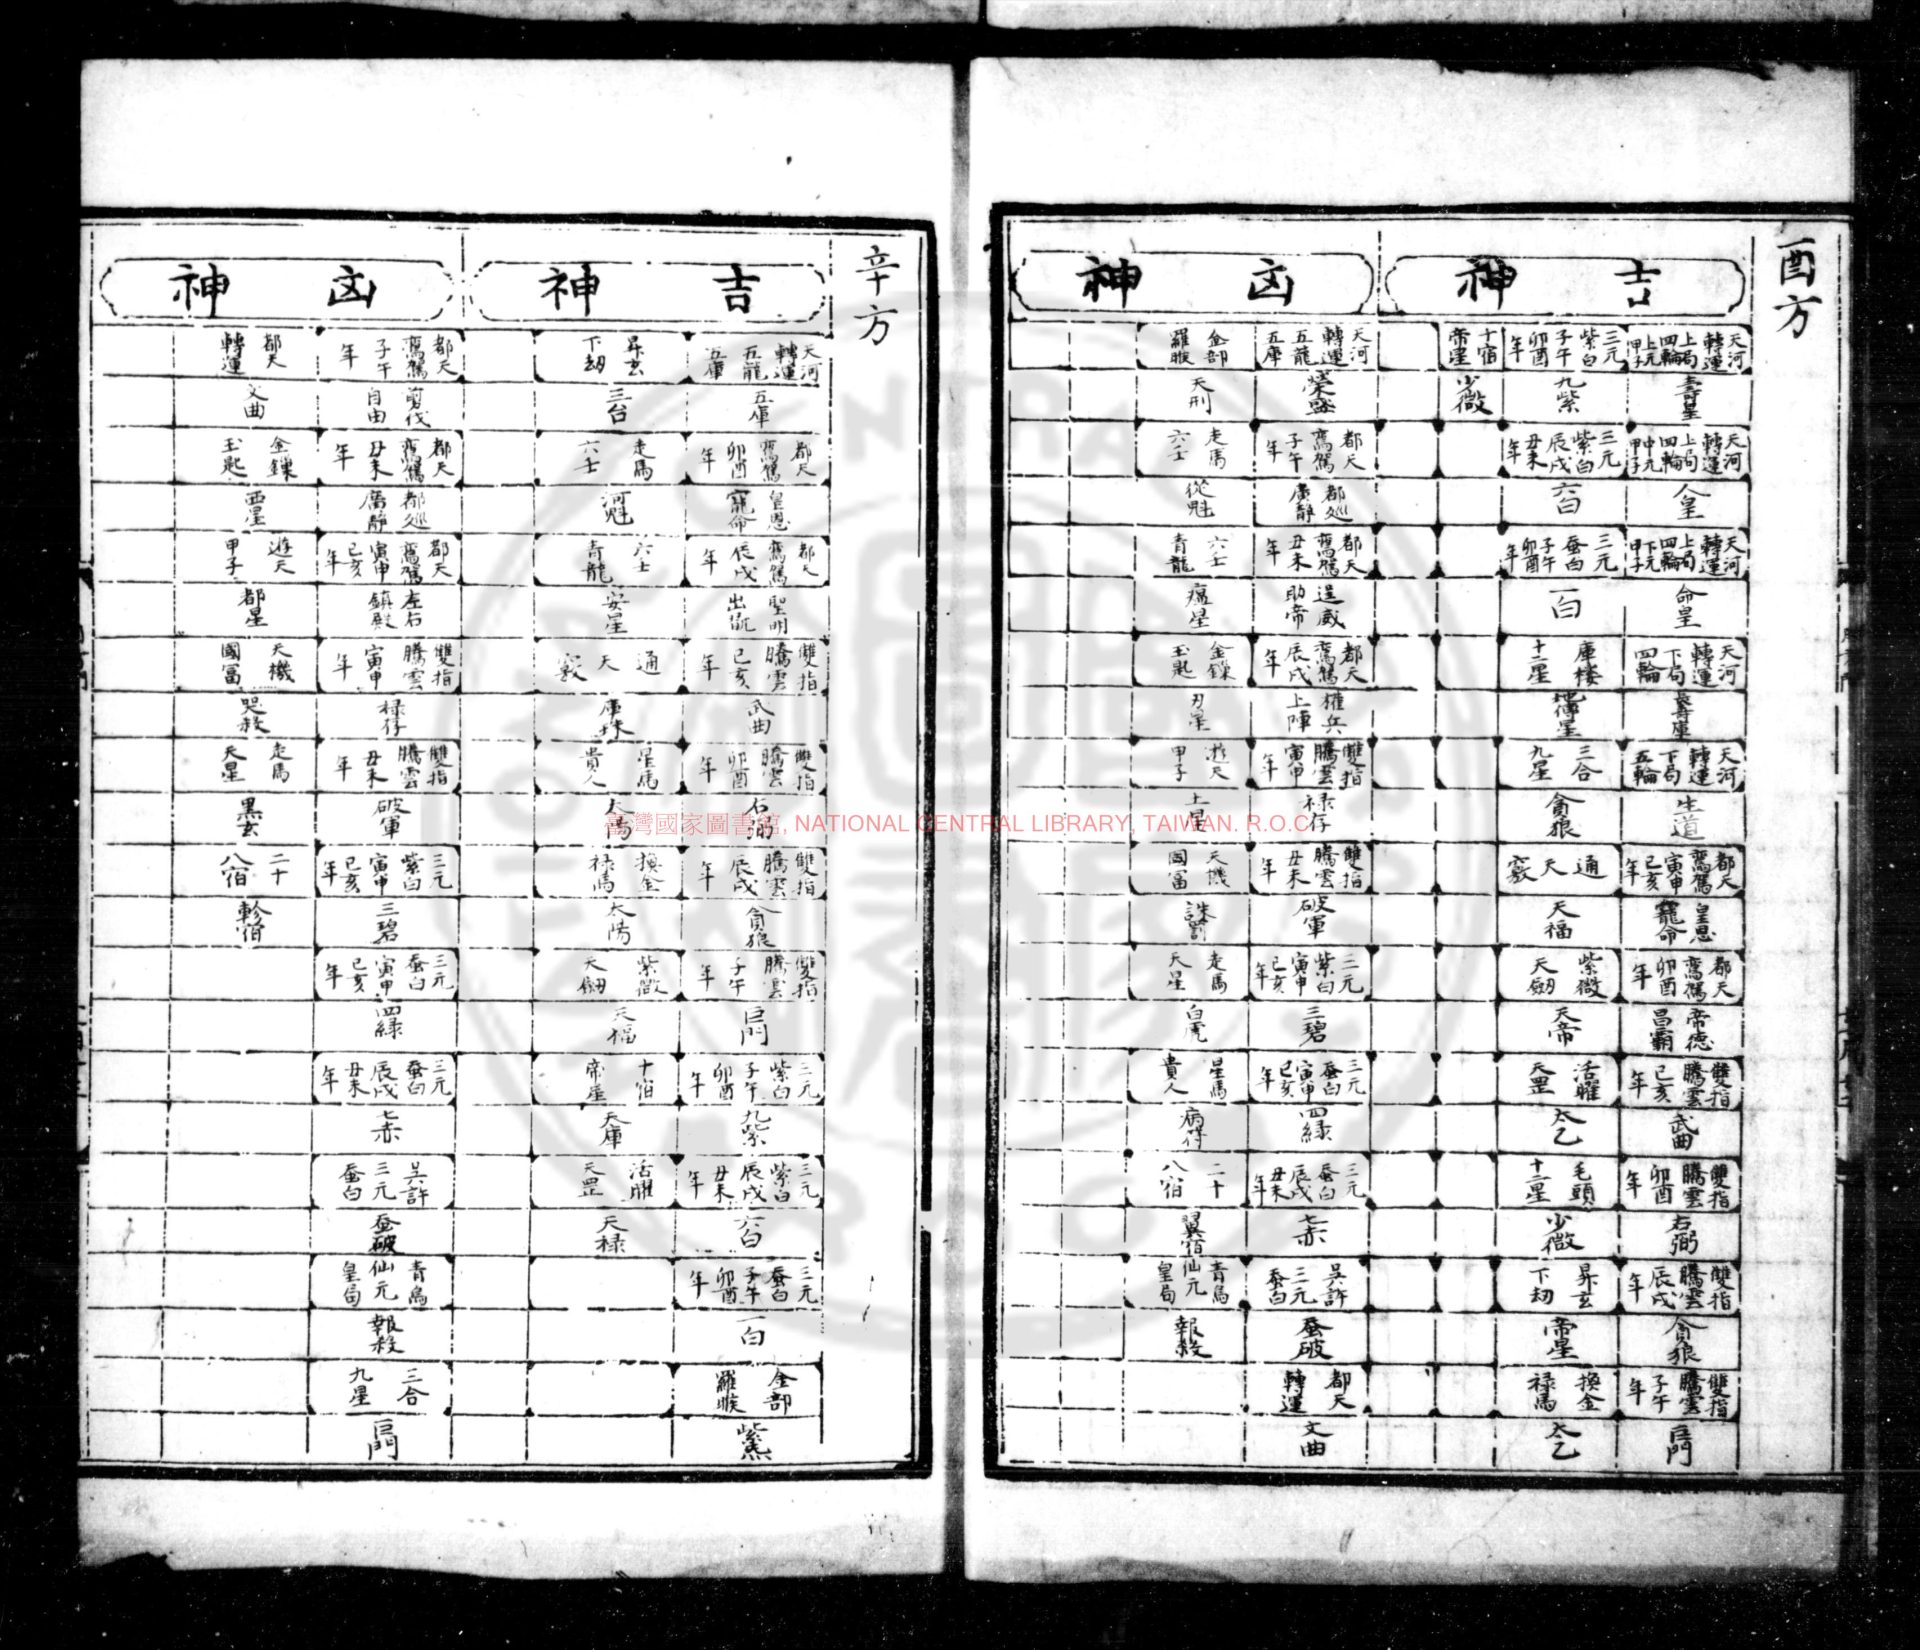 酉方
吉神
天河轉運上局四輪上元甲子
壽星
天河轉運上局四輪中元甲子
人皇
天河轉運上局四輪下元甲子
命皇
天河轉運下局四輪
壽庫
天河轉運下局五輪
生道
都天鸞駕寅申巳亥年
皇恩寵命
都天鸞駕卯酉年
帝德昌霸
雙指騰雲巳亥年
武曲
雙指騰雲卯酉年
右弼
雙指騰雲辰戌年
貪狼
雙指騰雲子午年
巨門
三元紫白子午卯酉年
九紫
三元紫白辰戌丑未年
六白
三元蚕白子午卯酉年
一白
庫楼十二星
三合九星
貪狼
通天竅
天福
紫微天刼
天帝
活曜天罡
太乙
毛頭十二星
少微
昇玄下刼
帝星
換金禄馬
太乙
十宿帝星
少微
凶神
天河轉運五龍五庫
都天鸞駕子午年
都巡廉静
都天鸞駕丑未年
逞威助帝
都天鸞駕辰戌年
權兵上陣
雙指騰雲寅申年
禄存
雙指騰雲丑未年
破軍
三元紫白寅申巳亥年
三碧
三元蚕白寅申巳亥年
四綠
三元蚕白辰戌丑未年
七赤
吴許三元蚕白
蚕破
都天轉運
文曲
金部羅睺
天刑
走馬六壬
從魁
六壬青龍
瘟星
金鏁玉匙
刃星
遊天甲子
土星
天機國冨
誅罰
走馬天星
白虎
星馬貴人
病符
二十八宿
翼宿
青烏仙元皇局
報殺
辛方
吉神
天河轉運五龍五庫
五庫
都天鸞駕卯酉年
皇恩寵命
都天鸞駕辰戌年
聖明出氙
雙指騰雲巳亥年
武曲
雙指騰雲卯酉年
右弼
雙指騰雲辰戌年
貪狼
雙指騰雲子午年
巨門
三元紫白子午卯酉年
九紫
三元紫白辰戌丑未年
六白
三元蚕白子午卯酉年
一白
金部羅睺
紫炁
昇玄下刼
三台
走馬六壬
河魁
六壬青龍
安星
通天竅
庫珠
星馬貴人
太陽
換金禄馬
太陽
紫微天刼
天福
十宿帝星
天庫
活曜天罡
天禄
凶神
都天鸞駕子午年
剪伐自由
都天鸞駕丑未年
都巡廉静
都天鸞駕寅申巳亥年
左右鎮殿
雙指騰雲寅申年
禄存
雙指騰雲丑未年
破軍
三元紫白寅申巳亥年
三碧
三元蚕白寅申巳亥年
四綠
三元蚕白辰戌丑未年
七赤
吴許三元蚕白
蚕破
青烏仙元皇局
報殺
三合九星
巨門
都天轉運
文曲
金鏁玉匙
西星
遊天甲子
都星
天機國冨
哭殺
走馬天星
黑玄
二十八宿
軫宿
臺灣國家圖書館, NATIONAL CENTRAL LIBRARY, TAIWAN. R.O.C